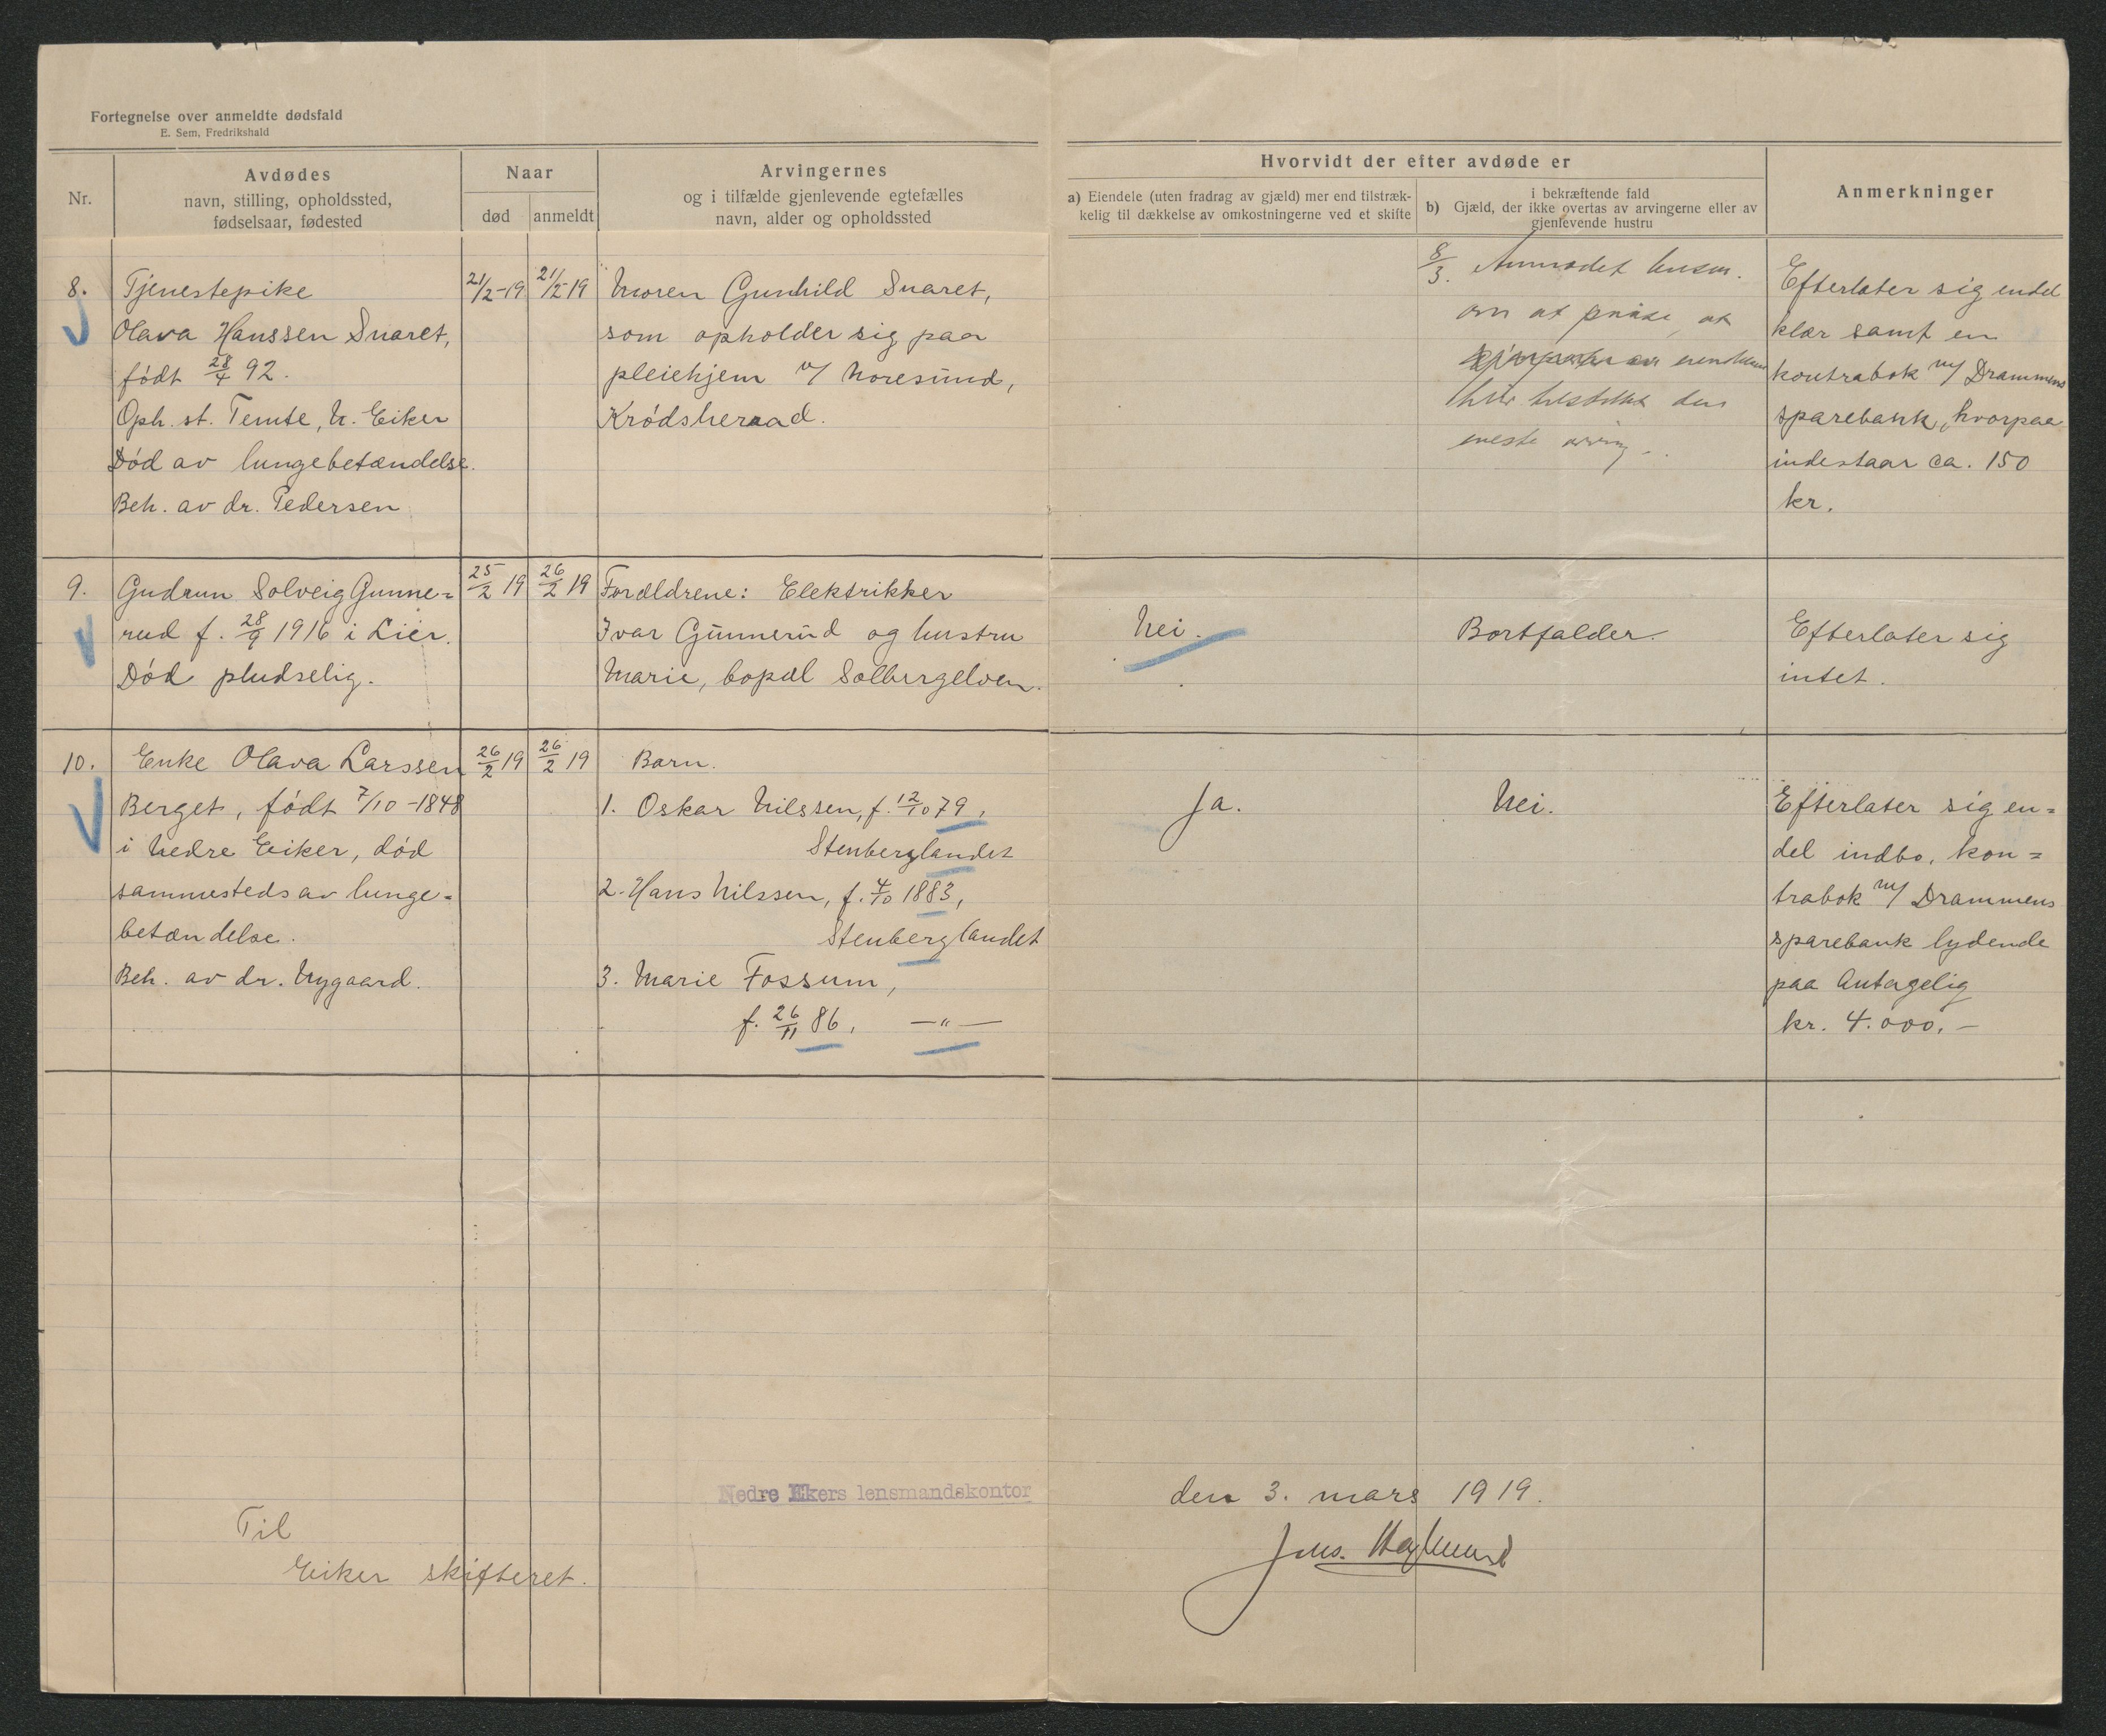 Fortegnelse over anmeldte dødsfald
E. Sem, Fredrikshald
Nr.
Avdødes
navn, stilling, opholdssted,
fødselsaar, fødested
Naar
død
anmeldt
Arvingernes
og i tilfælde gjenlevende egtefælles
navn, alder og opholdssted
Hvorvidt der efter avdøde er
a) Eiendele (uten fradrag av gjæld) mer end tilstræk-
kelig til dækkelse av omkostningerne ved et skifte
i bekræftende fald
b) Gjæld, der ikke overtas av arvingerne eller av
gjenlevende hustru
Anmerkninger
8.
Tjenestepike
Olava Hanssen Snaret,
født 28/4 92.
Oph. st. Temte, N. Eiker
Død av lungebetændelse.
Beh. av dr. Pedersen
21/2-19
21/2-19
Moren Gunhild Snaret,
som opholder sig paa
pleiehjem v/ Noresund,
Krødsheraad.
8/3. Anmodet lensm.
om at
den
eneste arving.
Efterlater sig endel
klær samt en
kontrabok m/ Drammens
sparebank, hvorpaa
indestaar ca. 150
kr.
9.
Gudrun Solveig Gunne=
rud f. 28/9 1916 i Lier.
Død pludselig.
25/2 19
26/2 19
Forældrene: Elektrikker
Ivar Gunnerud og hustru
Marie, bopæl Solbergelven.
Nei.
Bortfalder.
Efterlater sig
intet.
10.
Enke Olava Larssen
Berget, født 7/10-1848
i Nedre Eiker, død
sammesteds av lunge=
betændelse.
Beh. av dr. Nygaard.
26/2 19
26/2 19
Barn.
1. Oskar Nilssen, f. 12/10 79,
Stenberglandet
2. Hans Nilssen, f. 4/10 1883,
Stenberglandet
3. Marie Fossum,
f. 26/11 86, —"—
Ja.
Nei.
Efterlater sig en=
del indbo, kon=
trabok m/ Drammens
sparebank lydende
paa antagelig
kr. 4.000.-
Nedre Ekers lensmandskontor
den 3. mars 1919.
Til
Eiker skifteret.